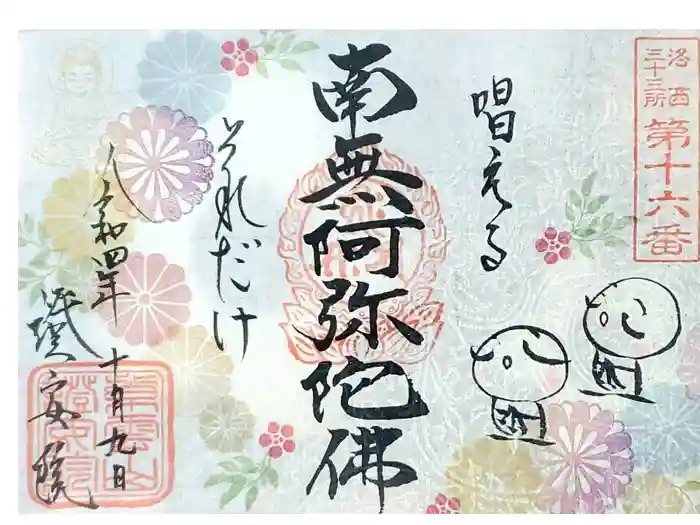 洛西
三十三所
第十六番
唱える
南無阿弥陀佛
それだけ
令和四年
十月九日